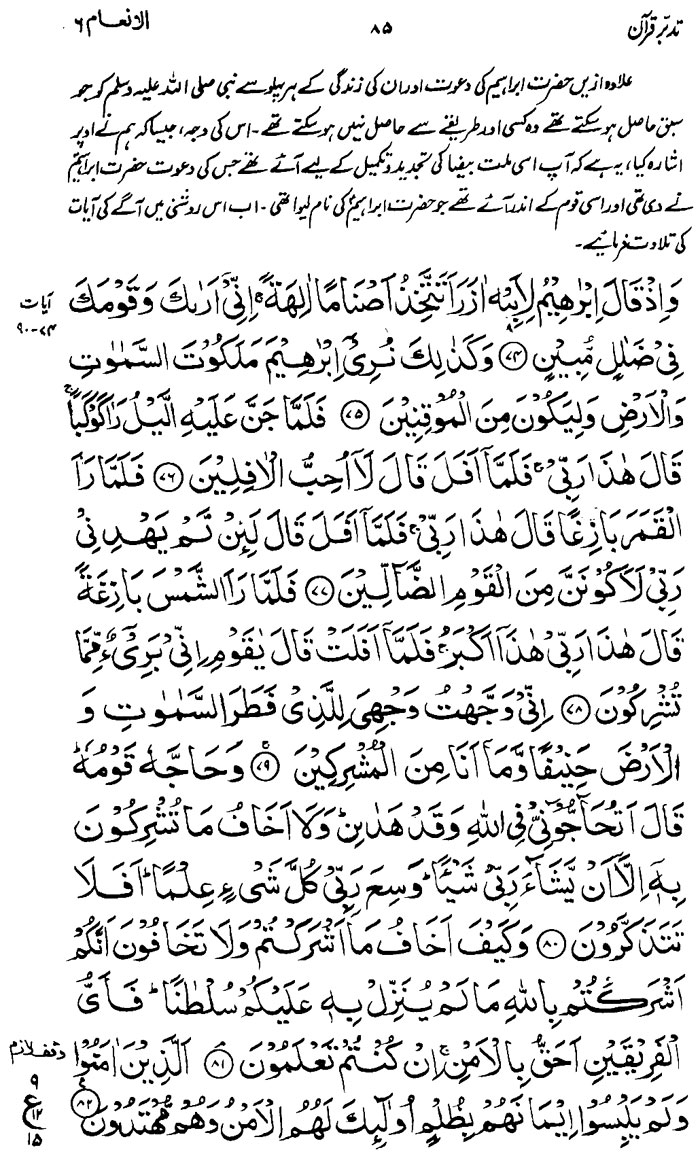 تدبّرِ قرآن ۸۵ الانعام ۶
علاوہ ازیں حضرت ابراہیمؑ کی دعوت اور ان کی زندگی کے ہر پہلو سے نبی صلی اللہ علیہ وسلم کو جو
سبق حاصل ہو سکتے تھے وہ کسی اور طریقے سے حاصل نہیں ہو سکتے تھے۔ اس کی وجہ، جیسا کہ ہم نے اوپر
اشارہ کیا، یہ ہے کہ آپ اسی ملت بیضا کی تجدید و تکمیل کے لیے آئے تھے جس کی دعوت حضرت ابراہیمؑ
نے دی تھی اور اسی قوم کے اندر آئے تھے جو حضرت ابراہیمؑ کی نام لیوا تھی۔ اب اس روشنی میں آگے کی آیات
کی تلاوت فرمائیے۔
وَاِذْ قَالَ اِبْرٰهِيْمُ لِاَبِيْهِ اٰزَرَ اَتَتَّخِذُ اَصْنَامًا اٰلِهَةً ۚ اِنِّيْٓ اَرٰىكَ وَقَوْمَكَ
آیات
۷۴-۹۰
فِيْ ضَلٰلٍ مُّبِيْنٍ ﴿۷۴﴾ وَكَذٰلِكَ نُرِيْٓ اِبْرٰهِيْمَ مَلَكُوْتَ السَّمٰوٰتِ
وَالْاَرْضِ وَلِيَكُوْنَ مِنَ الْمُوْقِنِيْنَ ﴿۷۵﴾ فَلَمَّا جَنَّ عَلَيْهِ الَّيْلُ رَاٰ كَوْكَبًا ۚ
قَالَ هٰذَا رَبِّيْ ۚ فَلَمَّآ اَفَلَ قَالَ لَآ اُحِبُّ الْاٰفِلِيْنَ ﴿۷۶﴾ فَلَمَّا رَاَ
الْقَمَرَ بَازِغًا قَالَ هٰذَا رَبِّيْ ۚ فَلَمَّآ اَفَلَ قَالَ لَئِنْ لَّمْ يَهْدِنِيْ
رَبِّيْ لَاَكُوْنَنَّ مِنَ الْقَوْمِ الضَّآلِّيْنَ ﴿۷۷﴾ فَلَمَّا رَاَ الشَّمْسَ بَازِغَةً
قَالَ هٰذَا رَبِّيْ هٰذَآ اَكْبَرُ ۚ فَلَمَّآ اَفَلَتْ قَالَ يٰقَوْمِ اِنِّيْ بَرِيْٓءٌ مِّمَّا
تُشْرِكُوْنَ ﴿۷۸﴾ اِنِّيْ وَجَّهْتُ وَجْهِيَ لِلَّذِيْ فَطَرَ السَّمٰوٰتِ وَ
الْاَرْضَ حَنِيْفًا وَّمَآ اَنَا مِنَ الْمُشْرِكِيْنَ ﴿۷۹﴾ وَحَآجَّهٗ قَوْمُهٗ ؕ
قَالَ اَتُحَآجُّوْٓنِّيْ فِي اللّٰهِ وَقَدْ هَدٰىنِ ؕ وَلَآ اَخَافُ مَا تُشْرِكُوْنَ
بِهٖٓ اِلَّآ اَنْ يَّشَآءَ رَبِّيْ شَيْـًٔا ؕ وَسِعَ رَبِّيْ كُلَّ شَيْءٍ عِلْمًا ؕ اَفَلَا
تَتَذَكَّرُوْنَ ﴿۸۰﴾ وَكَيْفَ اَخَافُ مَآ اَشْرَكْتُمْ وَلَا تَخَافُوْنَ اَنَّكُمْ
اَشْرَكْتُمْ بِاللّٰهِ مَا لَمْ يُنَزِّلْ بِهٖ عَلَيْكُمْ سُلْطٰنًا ؕ فَاَيُّ
الْفَرِيْقَيْنِ اَحَقُّ بِالْاَمْنِ ۚ اِنْ كُنْتُمْ تَعْلَمُوْنَ ﴿۸۱﴾ اَلَّذِيْنَ اٰمَنُوْا
وقف لازم
وَلَمْ يَلْبِسُوْٓا اِيْمَانَهُمْ بِظُلْمٍ اُولٰٓئِكَ لَهُمُ الْاَمْنُ وَهُمْ مُّهْتَدُوْنَ ﴿۸۲﴾
۹
ع
۱۲
۱۵